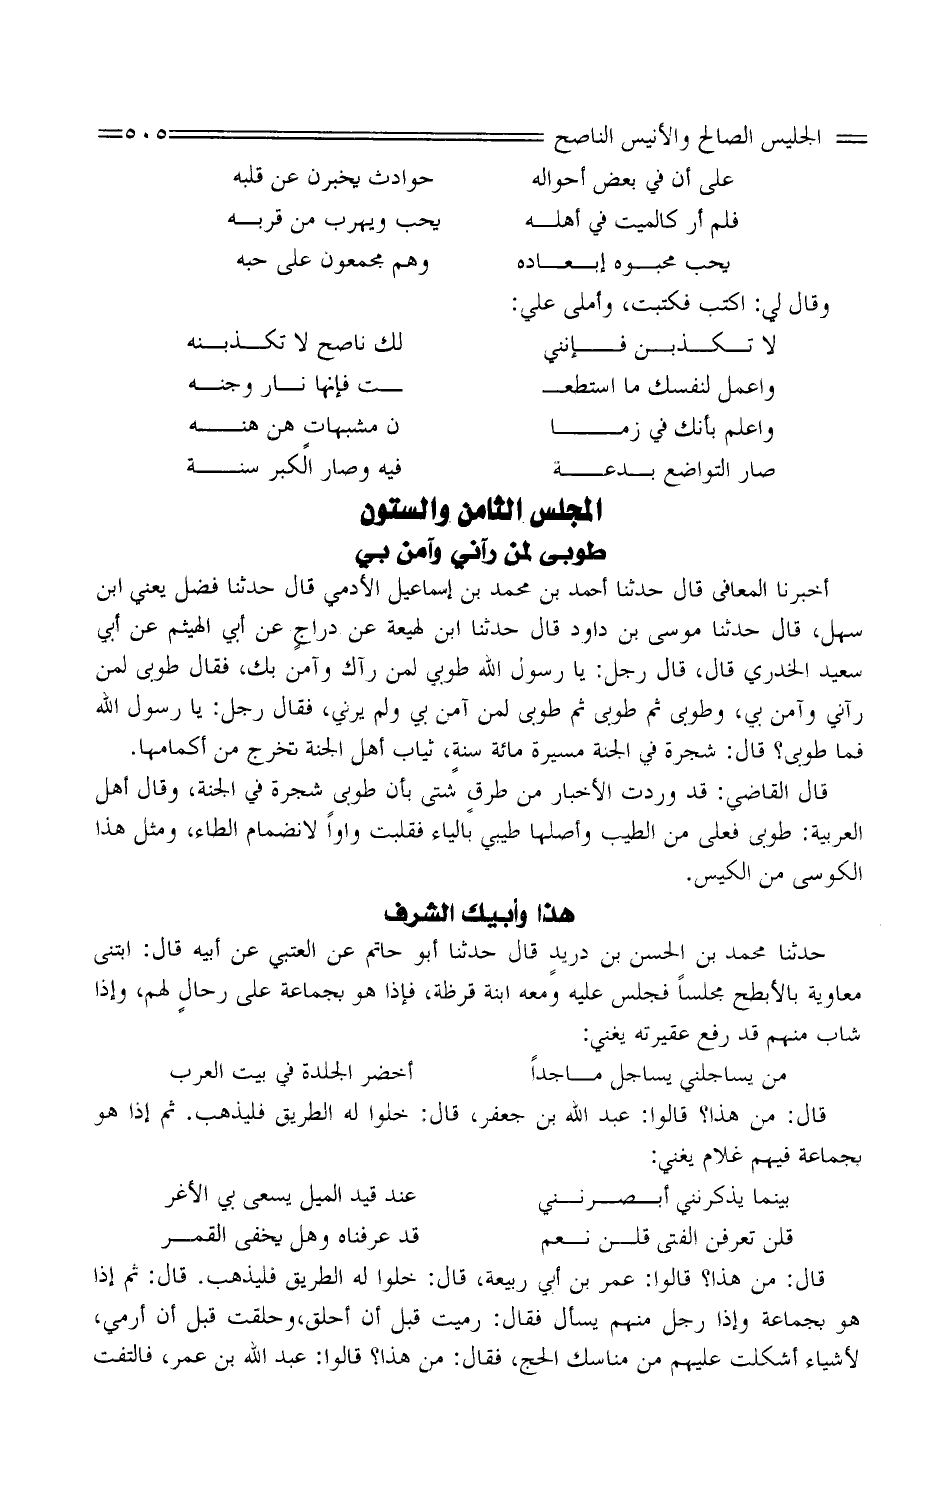 الجليس الصالح والأنيس الناصح ٥٠٥
على أن في بعض أحواله حوادث يخبرن عن قلبه
فلم أر كالميت في أهله يحب ويهرب من قربه
يحب محبوه إبعاده وهم مجمعون على حبه
وقال لي: اكتب فكتبت، وأملى علي:
لا تكذبن فإنني لك ناصح لا تكذبنه
واعمل لنفسك ما استطعـ ـت فإنها نار وجنه
واعلم بأنك في زما ن مشبهاتٍ هن هنه
صار التواضع بدعة فيه وصار الكبر سنة
المجلس الثامن والستون
طوبى لمن رآني وآمن بي
أخبرنا المعافى قال حدثنا أحمد بن محمد بن إسماعيل الأدمي قال حدثنا فضل يعني ابن
سهل، قال حدثنا موسى بن داود قال حدثنا ابن لهيعة عن دراجٍ عن أبي الهيثم عن أبي
سعيد الخدري قال، قال رجل: يا رسول الله طوبي لمن رآك وآمن بك، فقال طوبى لمن
رآني وآمن بي، وطوبي ثم طوبى ثم طوبى لمن آمن بي ولم يرني، فقال رجل: يا رسول الله
فما طوبى؟ قال: شجرة في الجنة مسيرة مائة سنةٍ، ثياب أهل الجنة تخرج من أكمامها.
قال القاضي: قد وردت الأخبار من طرقٍ شتى بأن طوبى شجرة في الجنة، وقال أهل
العربية: طوبى فعلى من الطيب وأصلها طيبي بالياء فقلبت واواً لانضمام الطاء، ومثل هذا
الكوسى من الكيس.
هذا وأبيك الشرف
حدثنا محمد بن الحسن بن دريدٍ قال حدثنا أبو حاتم عن العتبي عن أبيه قال: ابتنى
معاوية بالأبطح مجلساً فجلس عليه ومعه ابنة قرظة، فإذا هو بجماعة على رحالٍ لهم، وإذا
شاب منهم قد رفع عقيرته يغني:
من يساجلني يساجل ماجداً أخضر الجلدة في بيت العرب
قال: من هذا؟ قالوا: عبد الله بن جعفر، قال: خلوا له الطريق فليذهب. ثم إذا هو
بجماعة فيهم غلام يغني:
بينما يذكرنني أبصرنني عند قيد الميل يسعى بي الأغر
قلن تعرفن الفتى قلن نعم قد عرفناه وهل يخفى القمر
قال: من هذا؟ قالوا: عمر بن أبي ربيعة، قال: خلوا له الطريق فليذهب. قال: ثم إذا
هو بجماعة وإذا رجل منهم يسأل فقال: رميت قبل أن أحلق،وحلقت قبل أن أرمي،
لأشياء أشكلت عليهم من مناسك الحج، فقال: من هذا؟ قالوا: عبد الله بن عمر، فالتفت